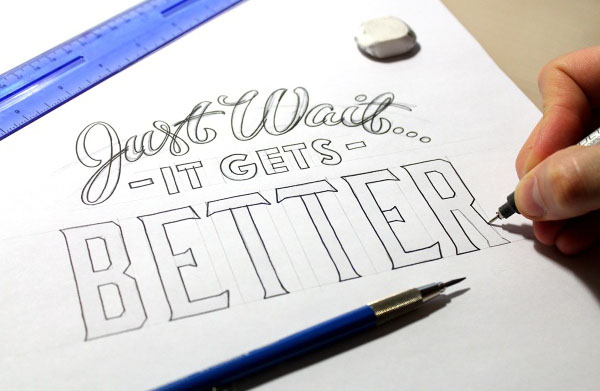 Just Wait...
-IT GETS-
BETTER